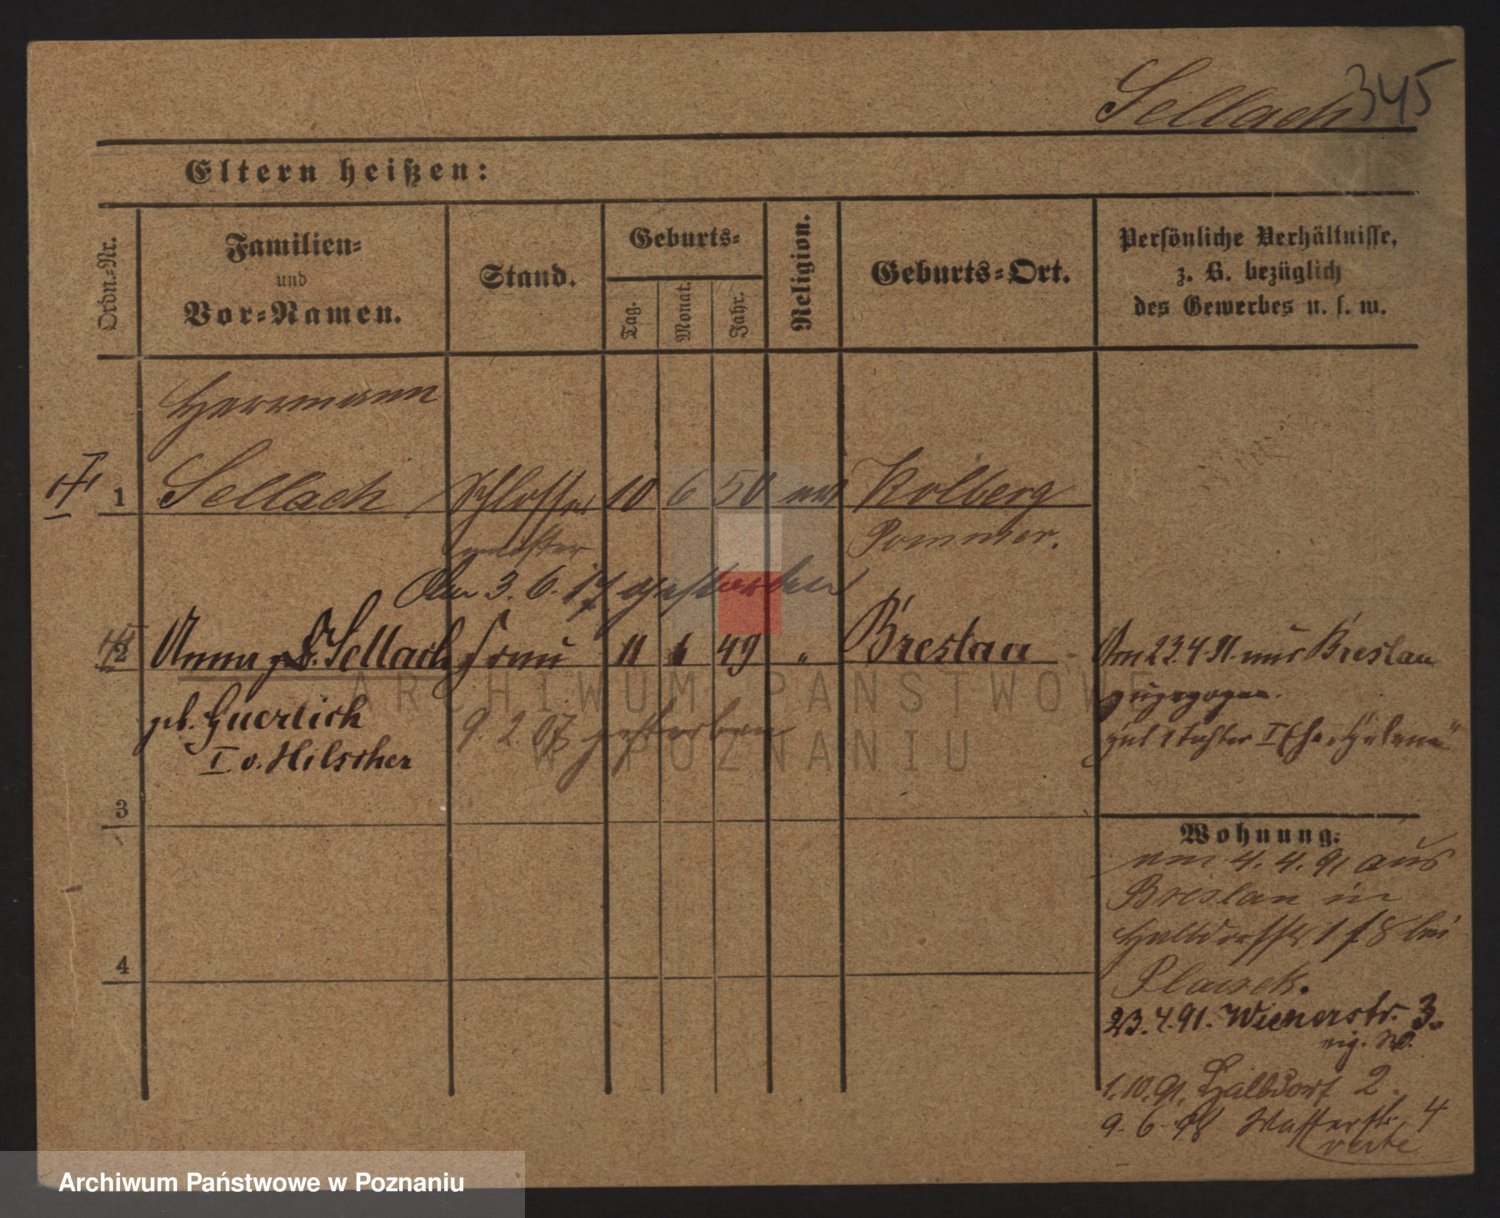 Sellach 345
Eltern heißen:
Ordn.-Nr.
Familien-
und
Vor-Namen.
Stand.
Geburts-
Tag.
Monat.
Jahr.
Religion.
Geburts-Ort.
Persönliche Verhältnisse,
z. B. bezüglich
des Gewerbes u. s. w.
Herrmann
1 Sellach Schlosser 10 6 50 ev Kolberg
meister Pommer.
Am 3. 6. 17 gestorben
2 Anna Sellach Frau 11 49 " Breslau
geb. Guerlich
I v. Hilscher
9. 2. 07 gestorben
Am 23.4.91. aus Breslau
zugezogen.
hat 1 Tochter I Ehe: Helene
3
4
Wohnung.
am 4. 4. 91 aus
Breslau in
Halbdorfstr 18 bei
23.4.91. Wienerstr. 3.
1.10.91. Halbdorf 2.
9. 6. 98 Wasserstr. 4
verte
ARCHIWUM PAŃSTWOWE
W POZNANIU
Archiwum Państwowe w Poznaniu